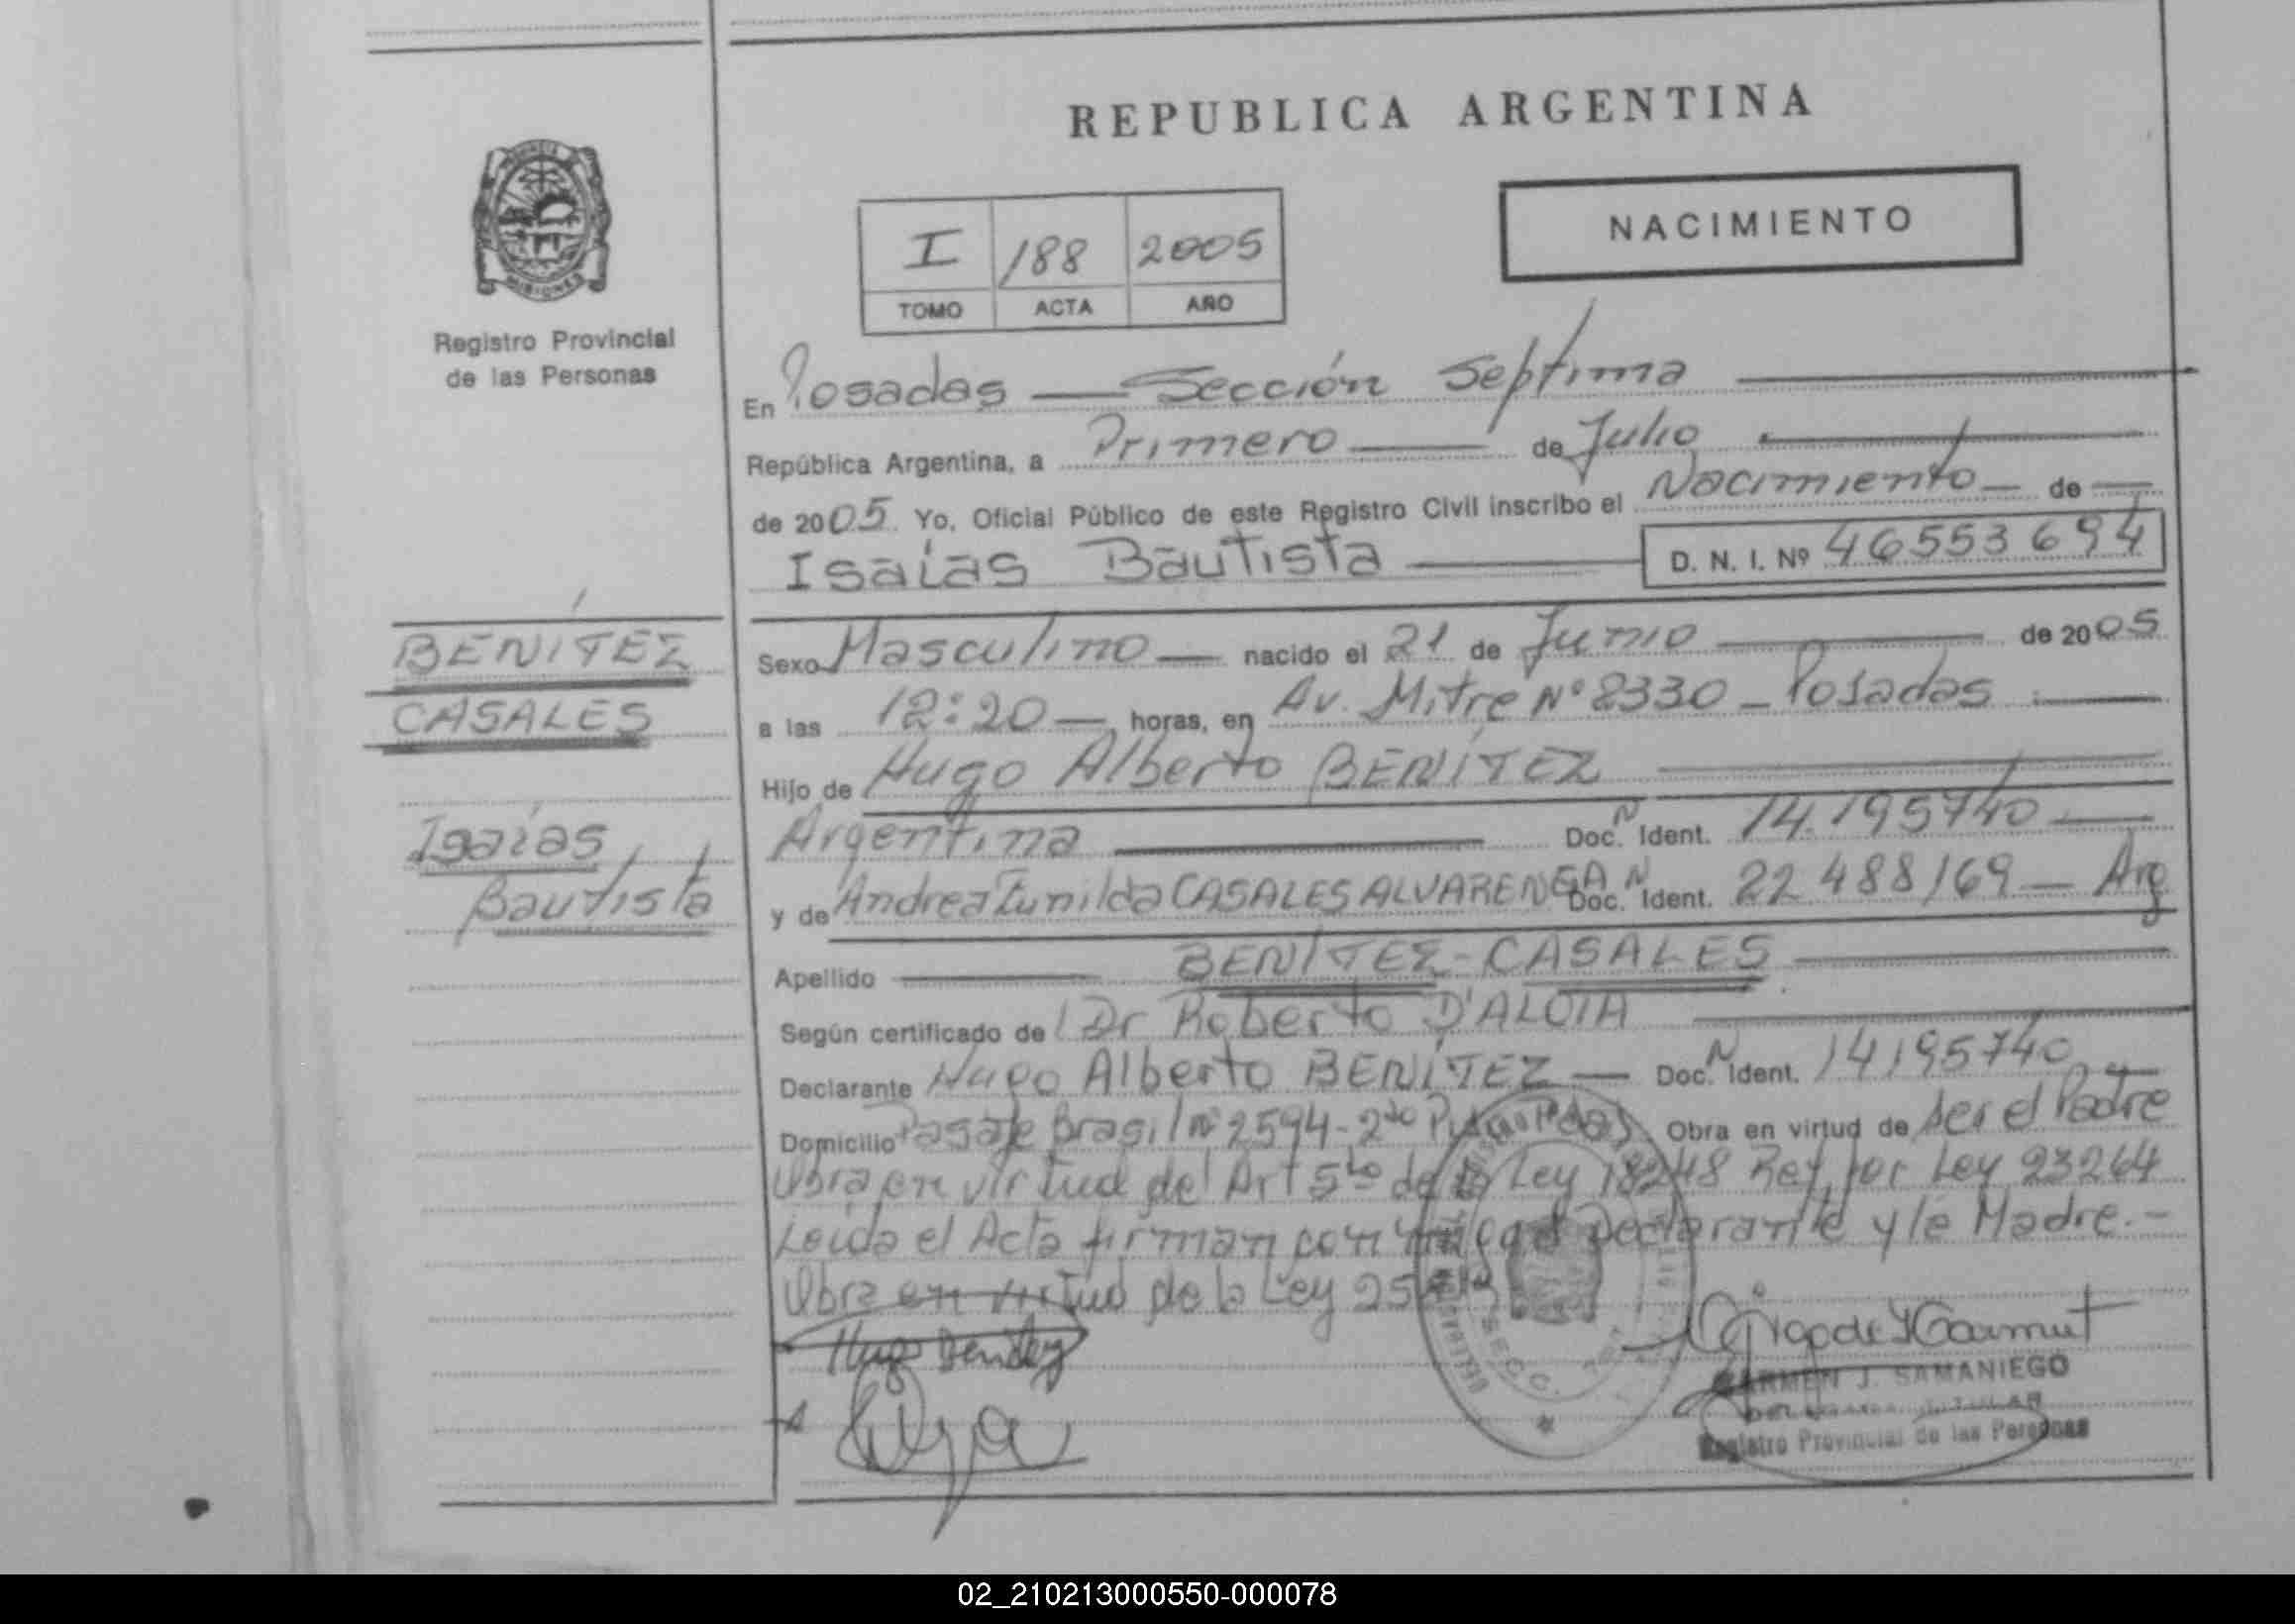 REPUBLICA ARGENTINA
NACIMIENTO
PROVINCIA DE
MISIONES
Registro Provincial
de las Personas
I /188 2005
TOMO ACTA AÑO
En Posadas — Sección Séptima —
República Argentina, a Primero — de Julio —
de 2005 Yo, Oficial Público de este Registro Civil inscribo el Nacimiento — de —
Isaías Bautista — D. N. I. Nº 46553694
BENÍTEZ
CASALES
Isaías
Bautista
Sexo Masculino — nacido el 21 de Junio — de 2005
a las 12:20 — horas, en Av. Mitre Nº 2330 – Posadas —
Hijo de Hugo Alberto BENÍTEZ —
Argentina — Doc. N Ident. 14.195740 —
y de Andrea CASALES ALVARENGA Doc. N Ident. 22 488169 — Arg
Apellido — BENÍTEZ - CASALES —
Según certificado de Dr Roberto D'ALOIA —
Declarante Hugo Alberto BENÍTEZ — Doc. N Ident. 14195740 —
Domicilio Pasaje Brasil nº 2594 - 2do Obra en virtud de ser el Padre
Obra en virtud del Art 5to de la Ley 18248 Ref por Ley 23264
Leída el Acta firman conmigo el Declarante y la Madre.-
Obra en virtud de la Ley
Hugo Benitez
SECC.
CARMEN J. SAMANIEGO
Registro Provincial de las Personas
02_210213000550-000078